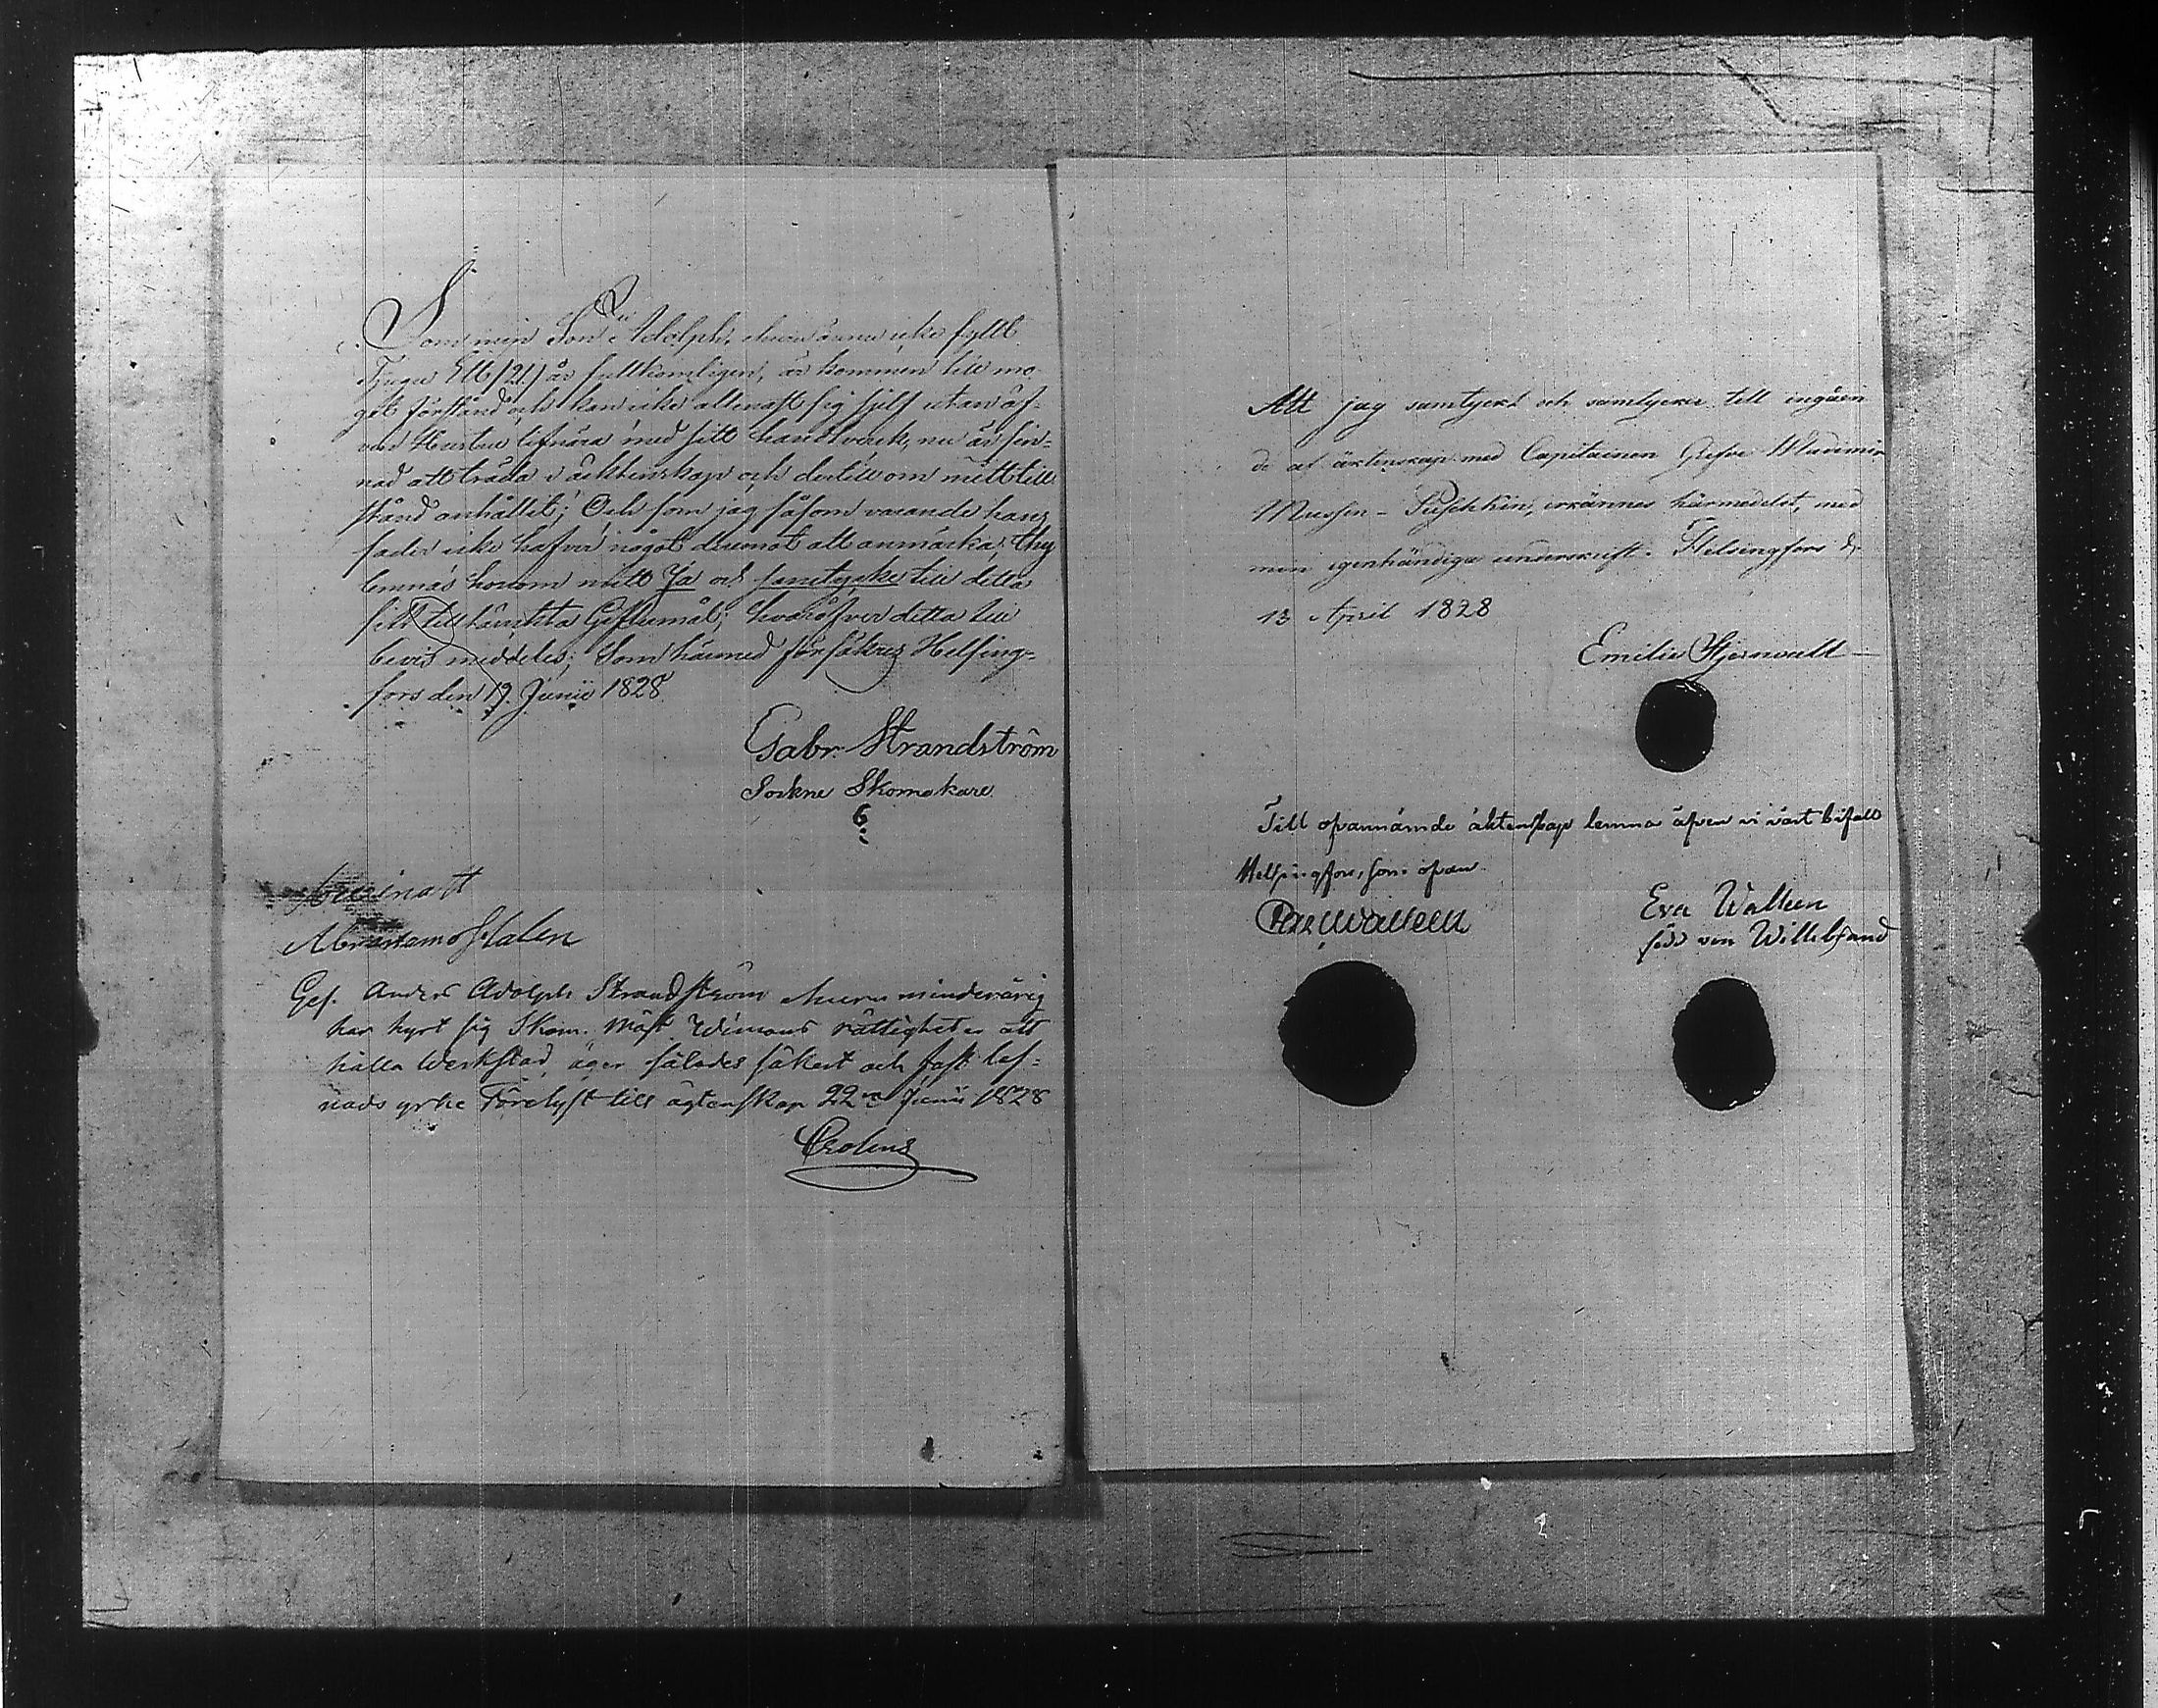 Som min Son Adolph, ehuru ännu icke fyllt
Tjugu Ett /21/ år fullkomligen, är kommen till mo-
get förstånd och kan icke allenast sig sjelf utan äf-
ven Hustru lifnära med sitt handtverk, nu är sin-
nad att träda i äcktenskap och dertill om mitt till-
stånd anhållit; Och som jag såsom varande hans
fader icke hafver något deremot att anmärka, thy
lemnas honom mitt Ja och samtycke till detta
sitt tilltänckta Giftermål; hvaröfver detta till
bevis meddeles; Som härmed försäkras Helsing-
fors den 19 Junii 1828
Gabr. Strandström
Sockne Skomakare
Ges. Anders Adolph Strandström ehuru minderårig
har hyrt sig Skom. Mäst. Wimans rättigheter att
hålla Werkstad, äger således säkert och fast lef-
nads yrke Förelyst till ägtenskap 22 Junii 1828
Crolund
Att jag samtyckt och samtycker till ingåen
de af äktenskap med Capitainen Grefve Wladimir
Mussin-Puschkin, erkännes härmedelst, med
min egenhändiga underskrift. Helsingfors d.
13 April 1828
Emilie Stjernvall
Till ofvannämde äktenskap lemna äfven vi vårt bifall
Helsingfors, som ofvan
Walleen
Eva Walleen
född von Willebrand